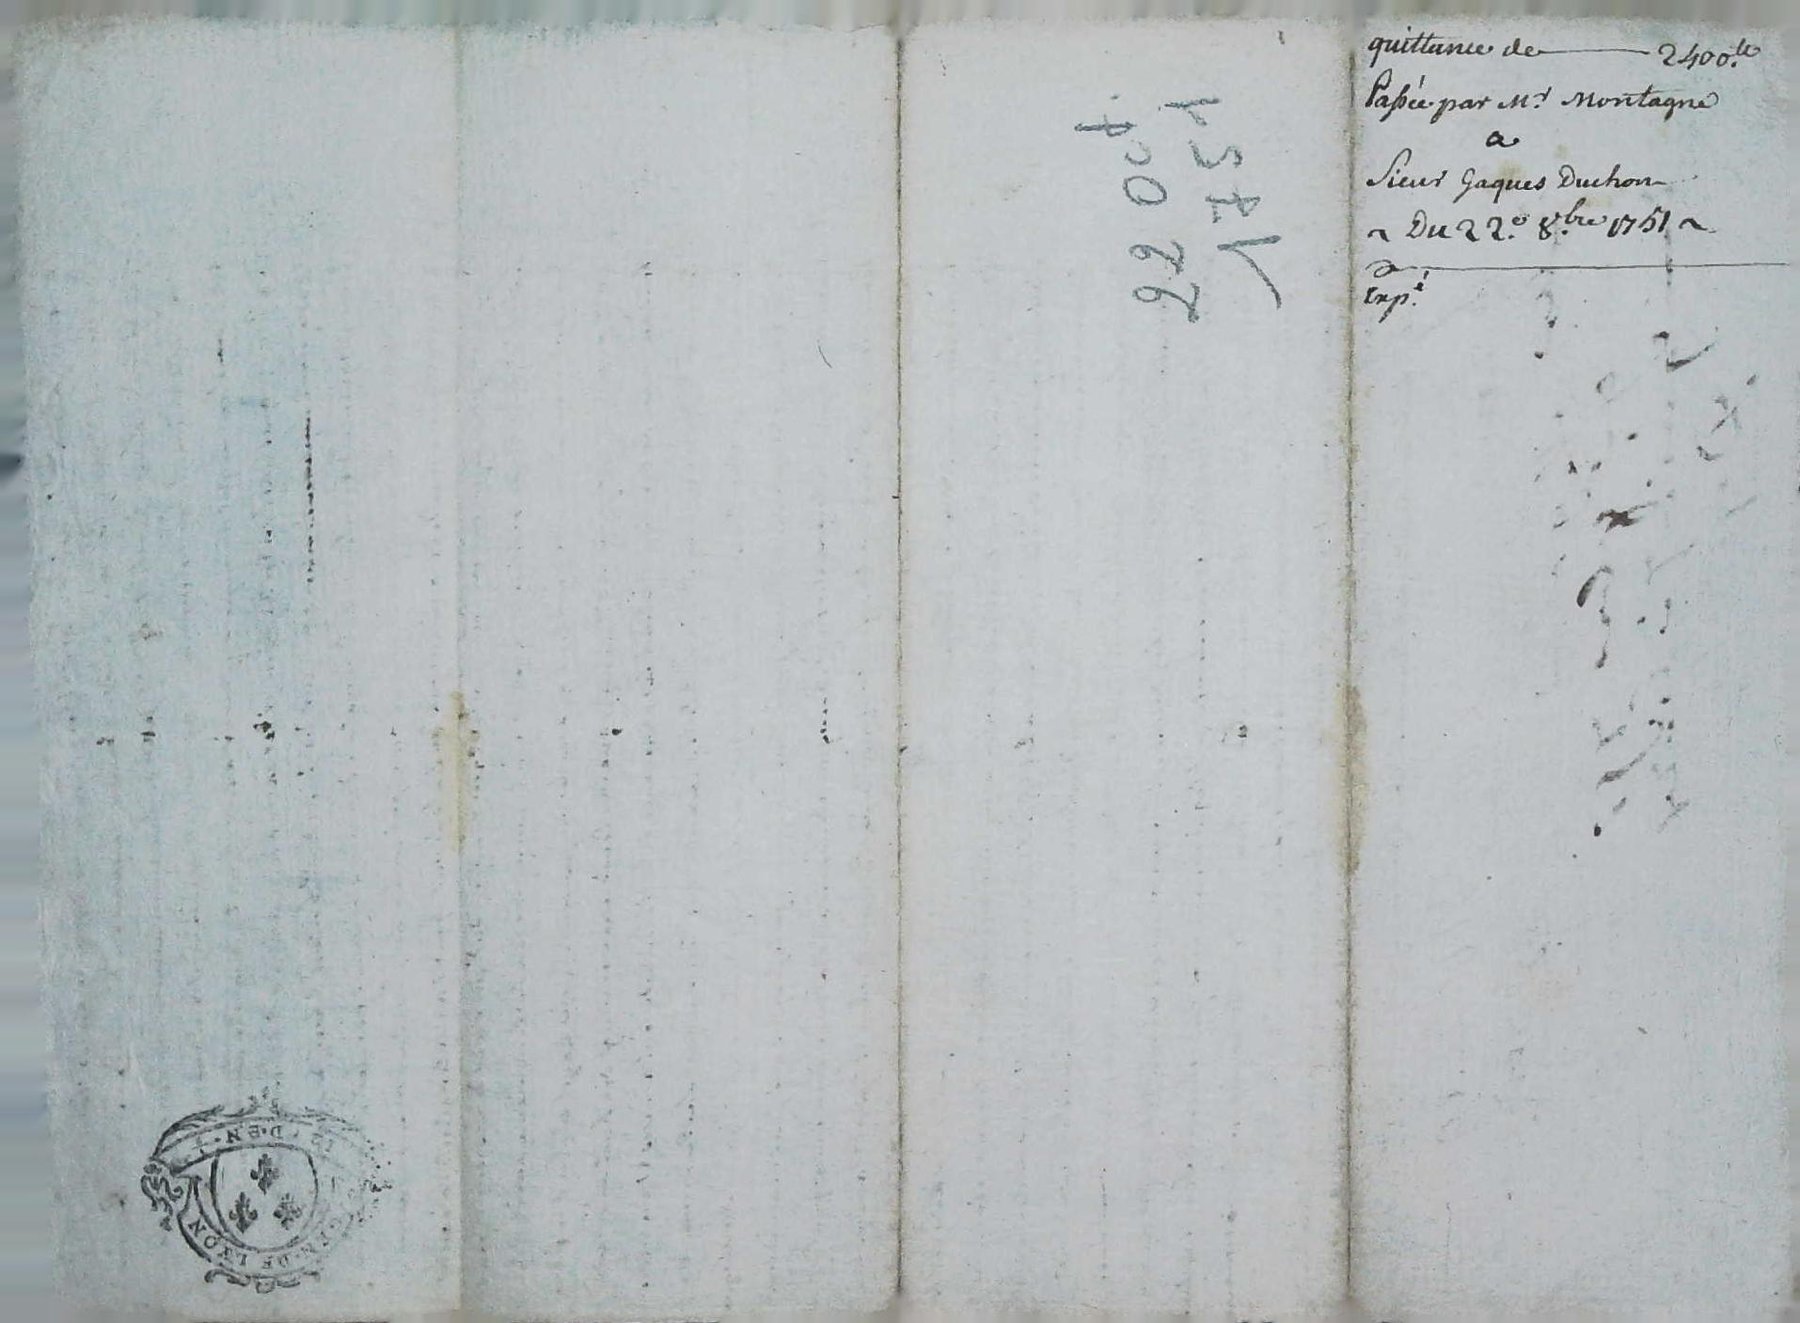 quittance de 2400.ᵗᵗ
Passée par Mʳ Montagne
a
Sieur Jaques Duchon
~ Du 22.ᵉ 8.bre 1751 ~
Exp.é
1751
DE LYON